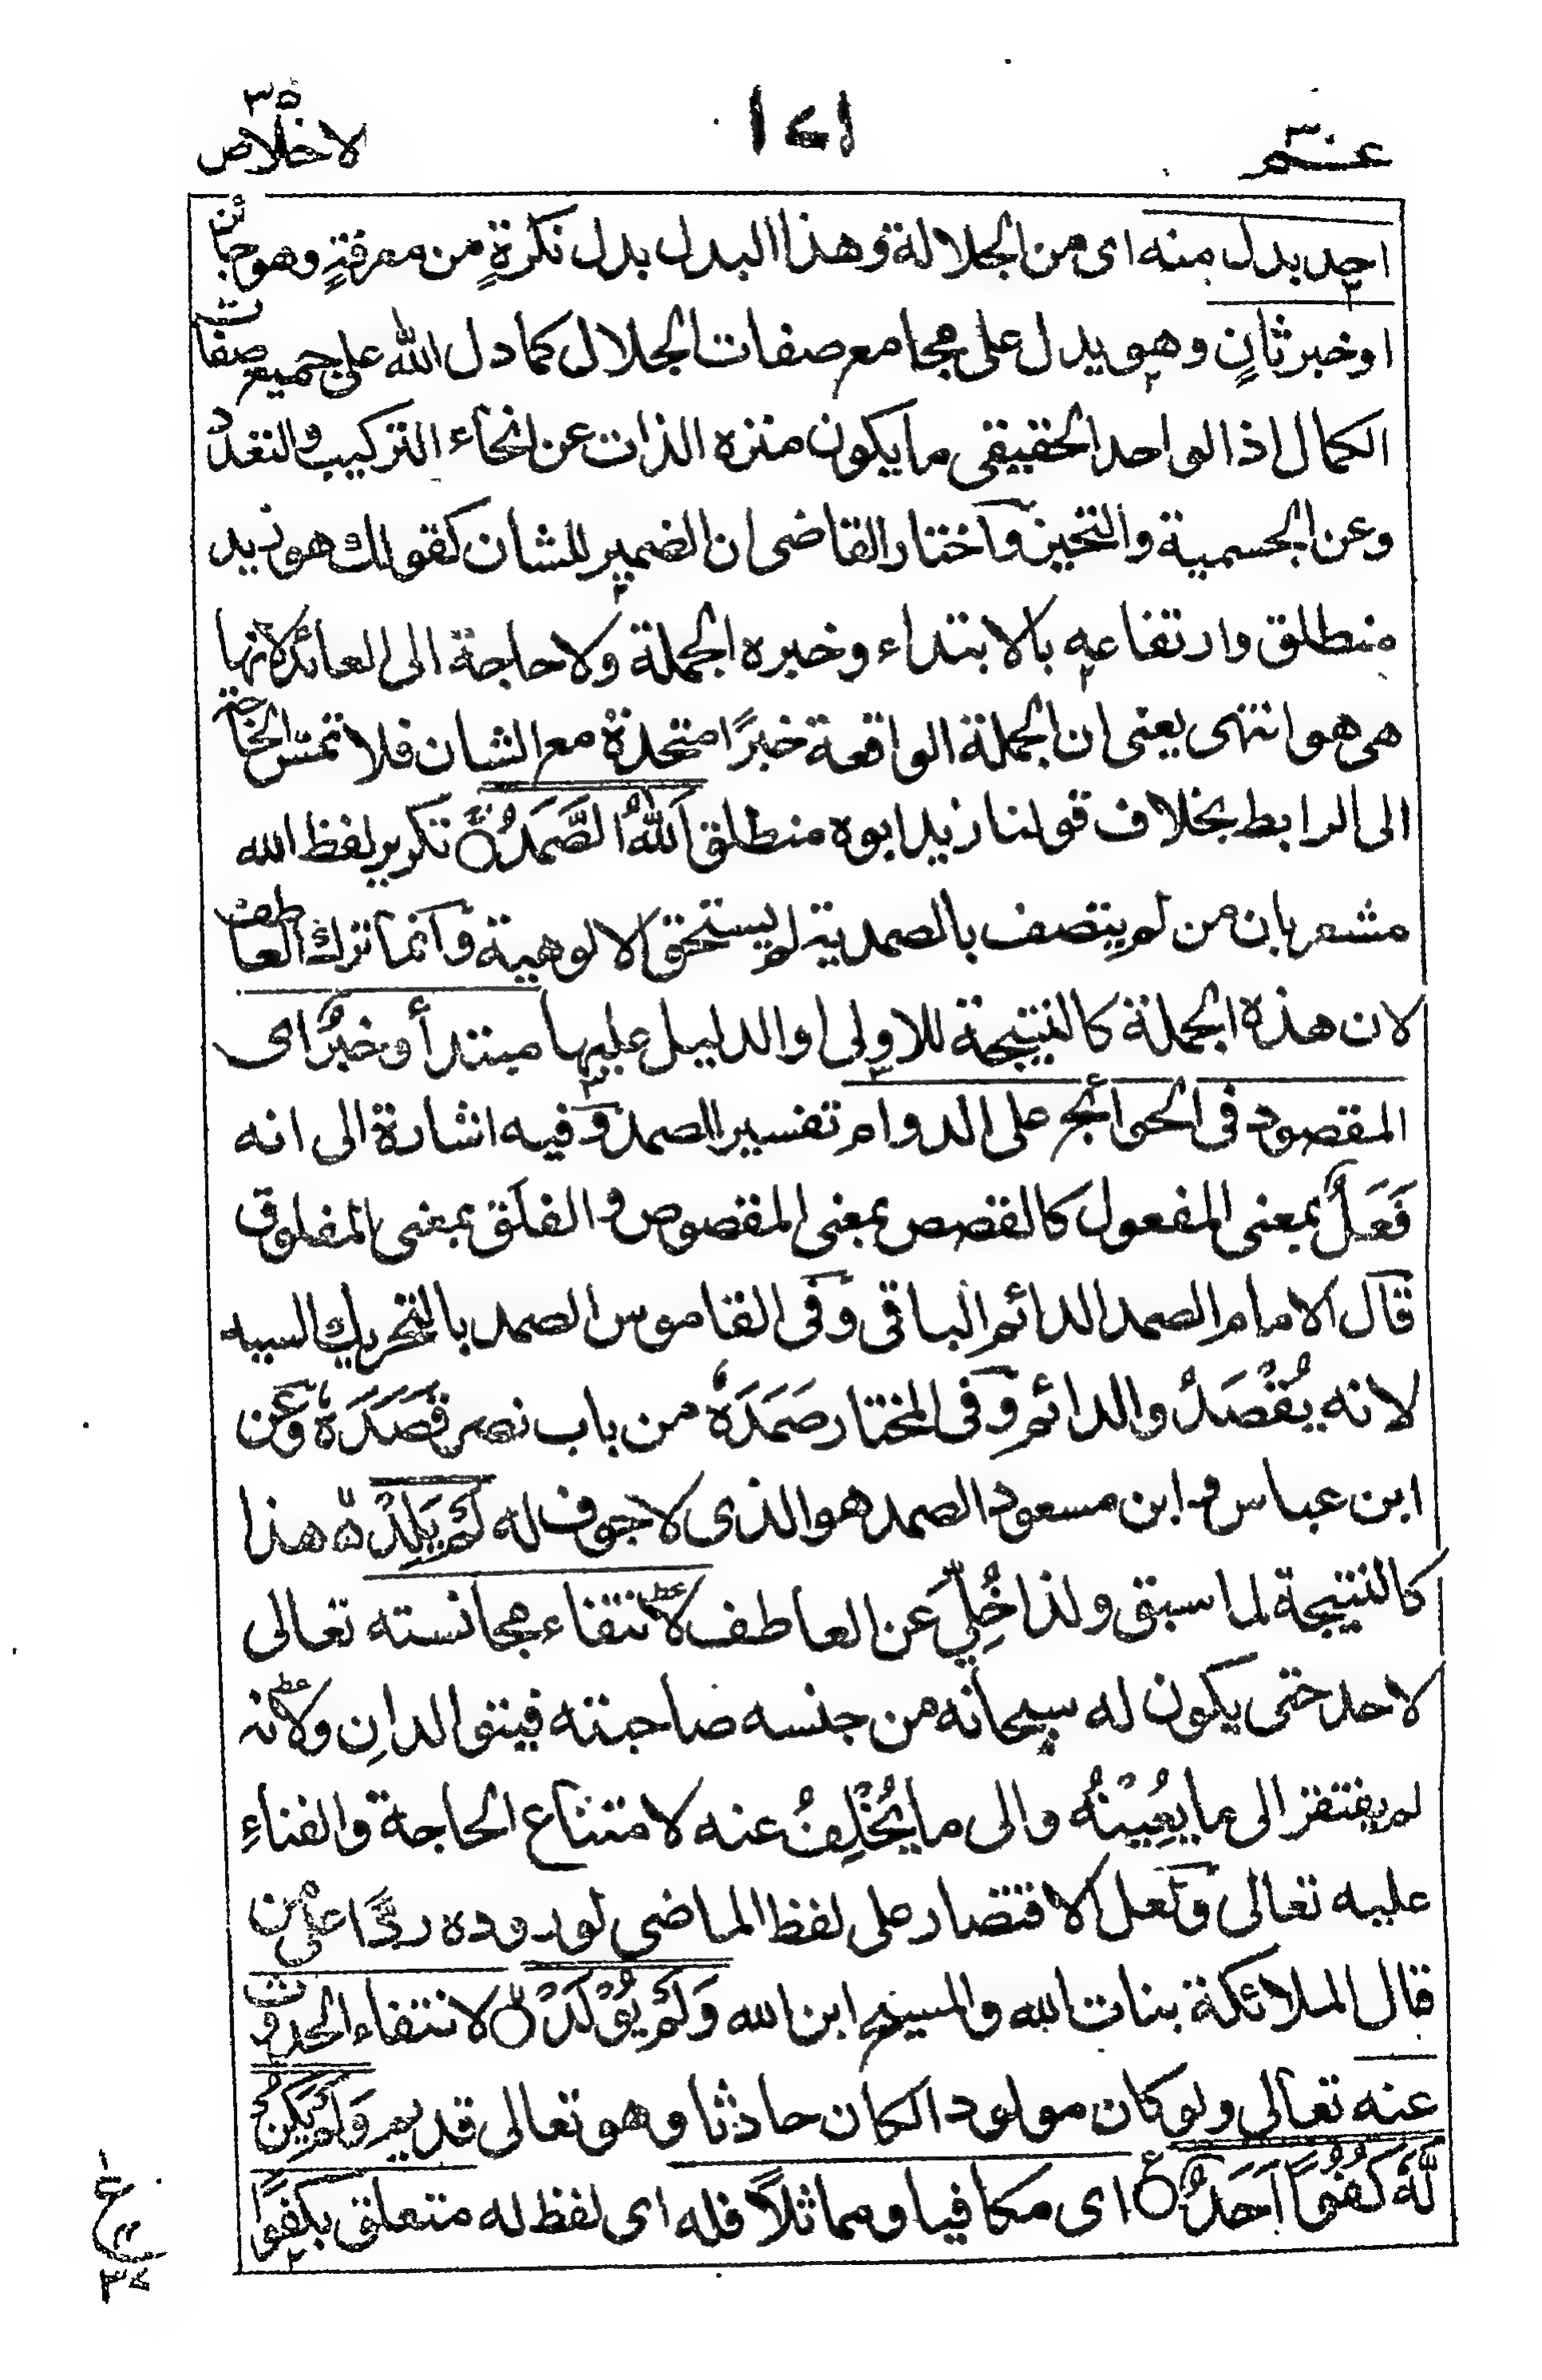 عم ٣٠
١٧١
الاخلاص
احد بدل منه اى من الجلالة وهذا البدل بدل نكرةٍ من معرفةٍ وهو جائز
او خبر ثانٍ وهو يدل على مجامع صفات الجلال كما دل الله على جميع صفات
الكمال اذ الواحد الحقيقى ما يكون منزه الذات عن انحاء التركيب والتعدد
وعن الجسمية والتحيز واختار القاضى ان الضمير للشان كقولك هو زيد
منطلق وارتفاعه بالابتداء وخبره الجملة ولا حاجة الى العائد لانها
هى هو انتهى يعنى ان الجملة الواقعة خبرًا متحدة مع الشان فلا تمس الحاجة
الى الرابط بخلاف قولنا زيد ابوه منطلق اَللّٰهُ الصَّمَدُ تكرير لفظ الله
مشعر بان من لم يتصف بالصمدية لم يستحق الالوهية وانما ترك العاطف
لان هذه الجملة كالنتيجة للاولى او الدليل عليها مبتدأ وخبرٌ اى
المقصود فى الحوائج على الدوام تفسير الصمد وفيه اشارة الى انه
فَعَلٌ بمعنى المفعول كالقصص بمعنى المقصوص والفلَق بمعنى المفلوق
قال الامام الصمد الدائم الباقى وفى القاموس الصمد بالتحريك السيد
لانه يُقْصَدُ والدائم وفى المختار صَمَدَهٗ من باب نصر قَصَدَهٗ وعن
ابن عباس وابن مسعود الصمد هو الذى لا جوف له لَمْ يَلِدْ هذا
كالنتيجة لما سبق ولذا خُلِّيَ عن العاطف لانتفاء مجانسته تعالى
لاحد حتى يكون له سبحانه من جنسه صاحبته فيتوالدانِ ولانه
لم يفتقر الى ما يُعِيْنُهٗ والى ما يُخْلِفُ عنه لامتناع الحاجة والفناءِ
عليه تعالى ولعل الاقتصار على لفظ الماضى لوروده ردًّا على من
قال الملائكة بنات الله والمسيح ابن الله وَلَمْ يُوْلَدْ لانتفاء الحدوث
عنه تعالى ولو كان مولودا لكان حادثا وهو تعالى قديم وَلَمْ يَكُنْ
لَّهٗ كُفُوًا اَحَدٌ اى مكافيا ومماثلاً فله اى لفظ له متعلق بكفوًا
ع